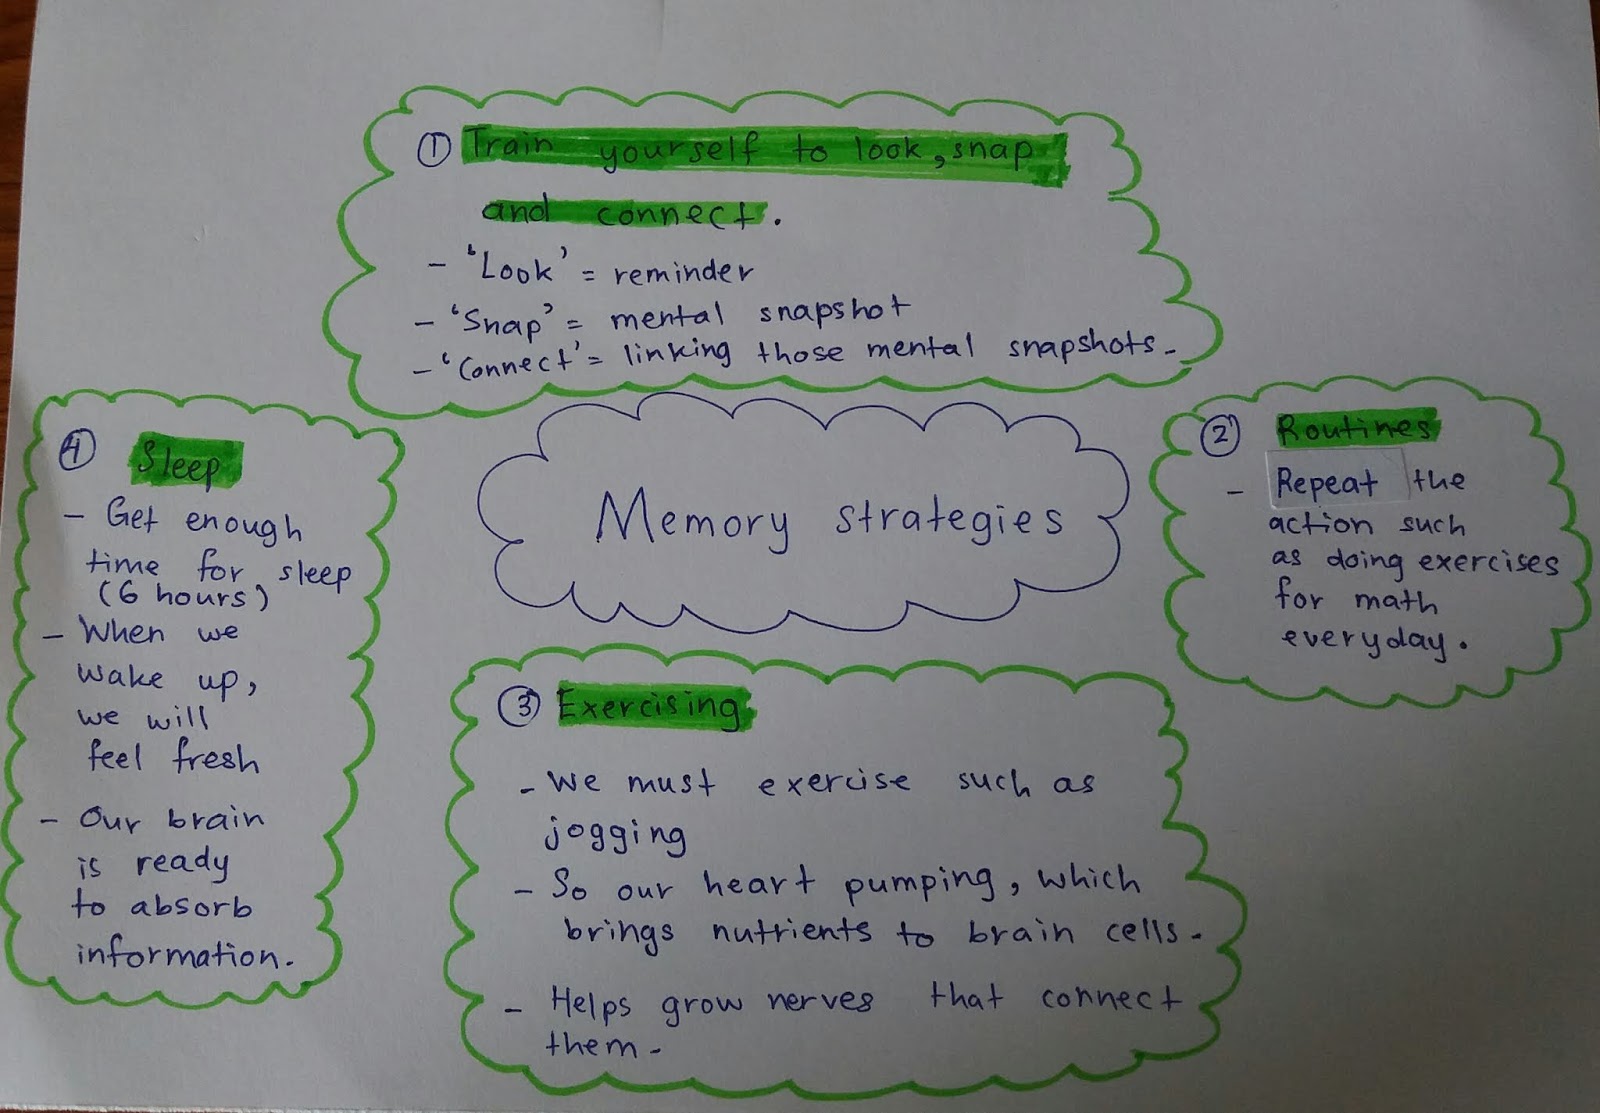 Memory strategies
① Train yourself to look, snap
and connect.
- 'Look' = reminder
- 'Snap' = mental snapshot
- 'Connect' = linking those mental snapshots.
② Routines
- Repeat the
action such
as doing exercises
for math
everyday.
③ Exercising
- We must exercise such as
jogging
- So our heart pumping, which
brings nutrients to brain cells.
- Helps grow nerves that connect
them.
④ Sleep
- Get enough
time for sleep
(6 hours)
- When we
wake up,
we will
feel fresh
- Our brain
is ready
to absorb
information.